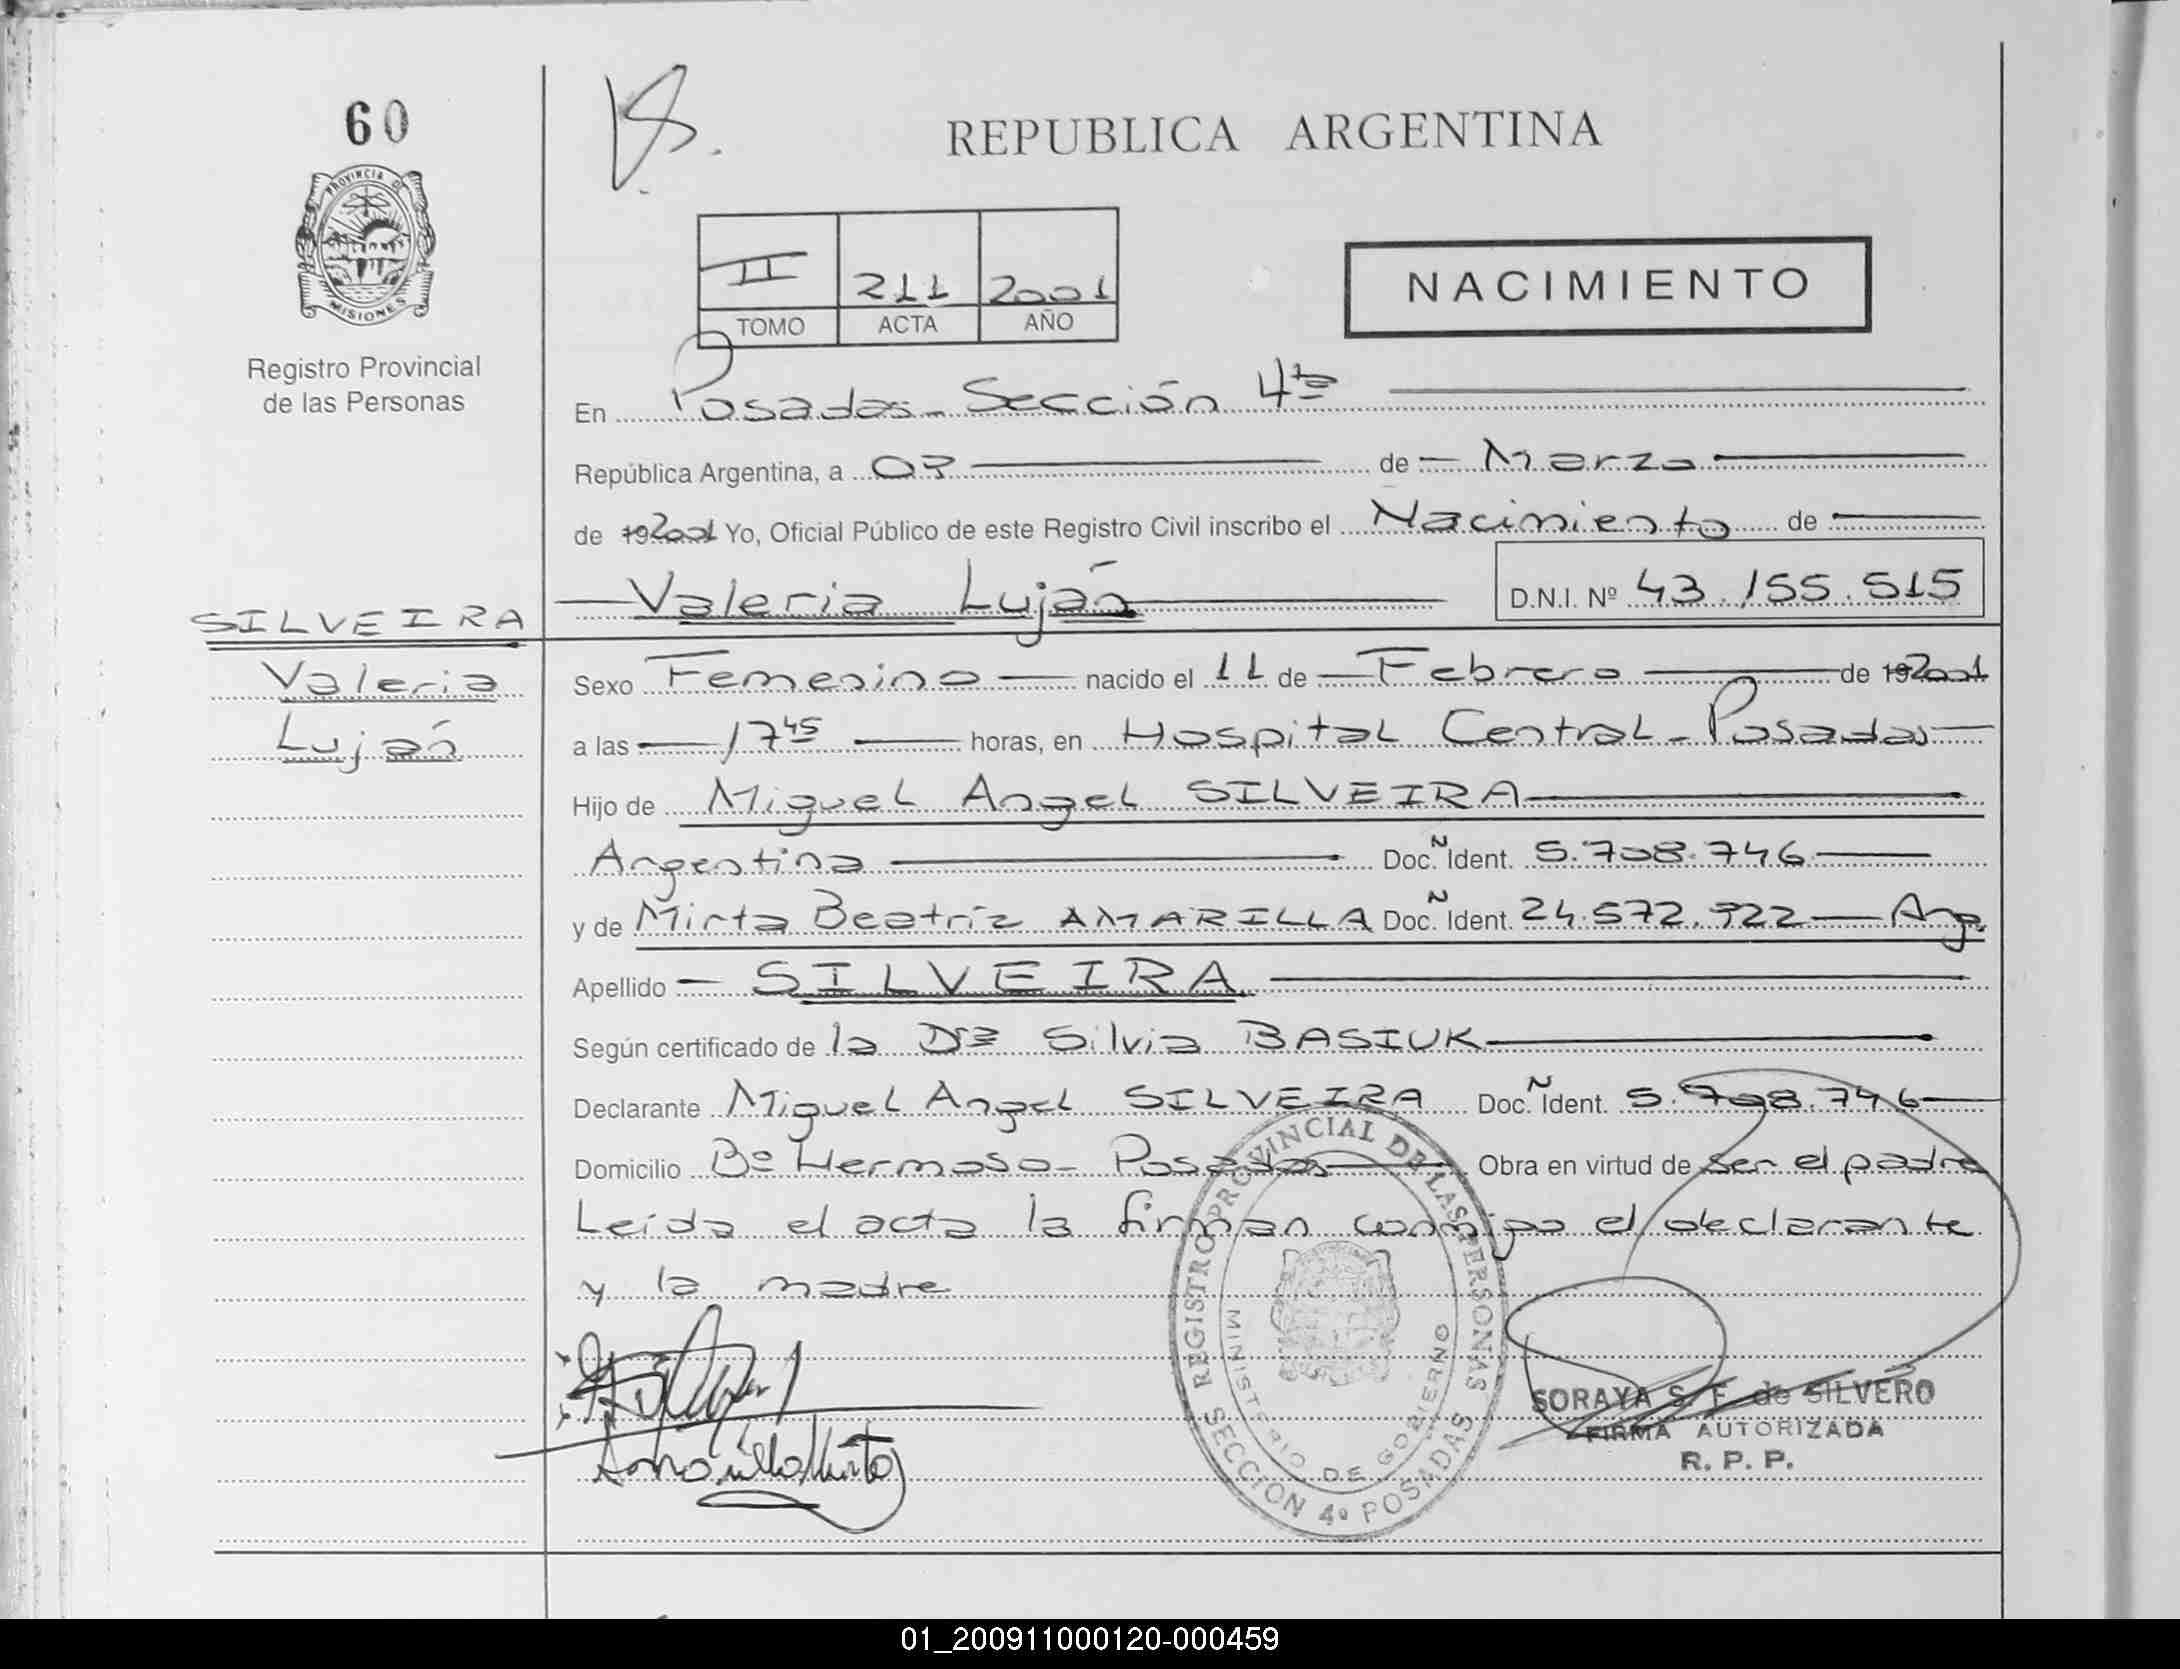 60
PROVINCIA DE
MISIONES
Registro Provincial
de las Personas
REPUBLICA ARGENTINA
II 211 2001
TOMO ACTA AÑO
NACIMIENTO
En Posadas - Sección 4ta
República Argentina, a 07 de Marzo
de 192001 Yo, Oficial Público de este Registro Civil inscribo el Nacimiento de
Valeria Luján D.N.I. Nº 43.155.515
SILVEIRA
Valeria
Luján
Sexo Femenino nacido el 11 de Febrero de 192001
a las 17 45 horas, en Hospital Central - Posadas
Hijo de Miguel Angel SILVEIRA
Argentina Doc. Ñ Ident. 5.708.746
y de Mirta Beatríz AMARILLA Doc. Ñ Ident. 24.572.922 Arg.
Apellido SILVEIRA
Según certificado de la Dra Silvia BASIUK
Declarante Miguel Angel SILVEIRA Doc. Ñ Ident. 5.708.746
Domicilio Bº Hermoso - Posadas Obra en virtud de ser el padre
Leida el acta la firman conmigo el declarante
y la madre
Amarilla Mirta
REGISTRO PROVINCIAL DE LAS PERSONAS
MINISTERIO DE GOBIERNO
SECCION 4º POSADAS
SORAYA S. F. de SILVERO
FIRMA AUTORIZADA
R. P. P.
01_200911000120-000459